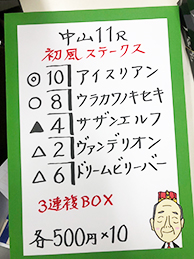 中山11R
初風ステークス
◎10 アイスリアン
○8 ウラカワノキセキ
▲4 サザンエルフ
△2 ヴァンデリオン
△6 ドリームビリーバー
3連複BOX
各500円×10